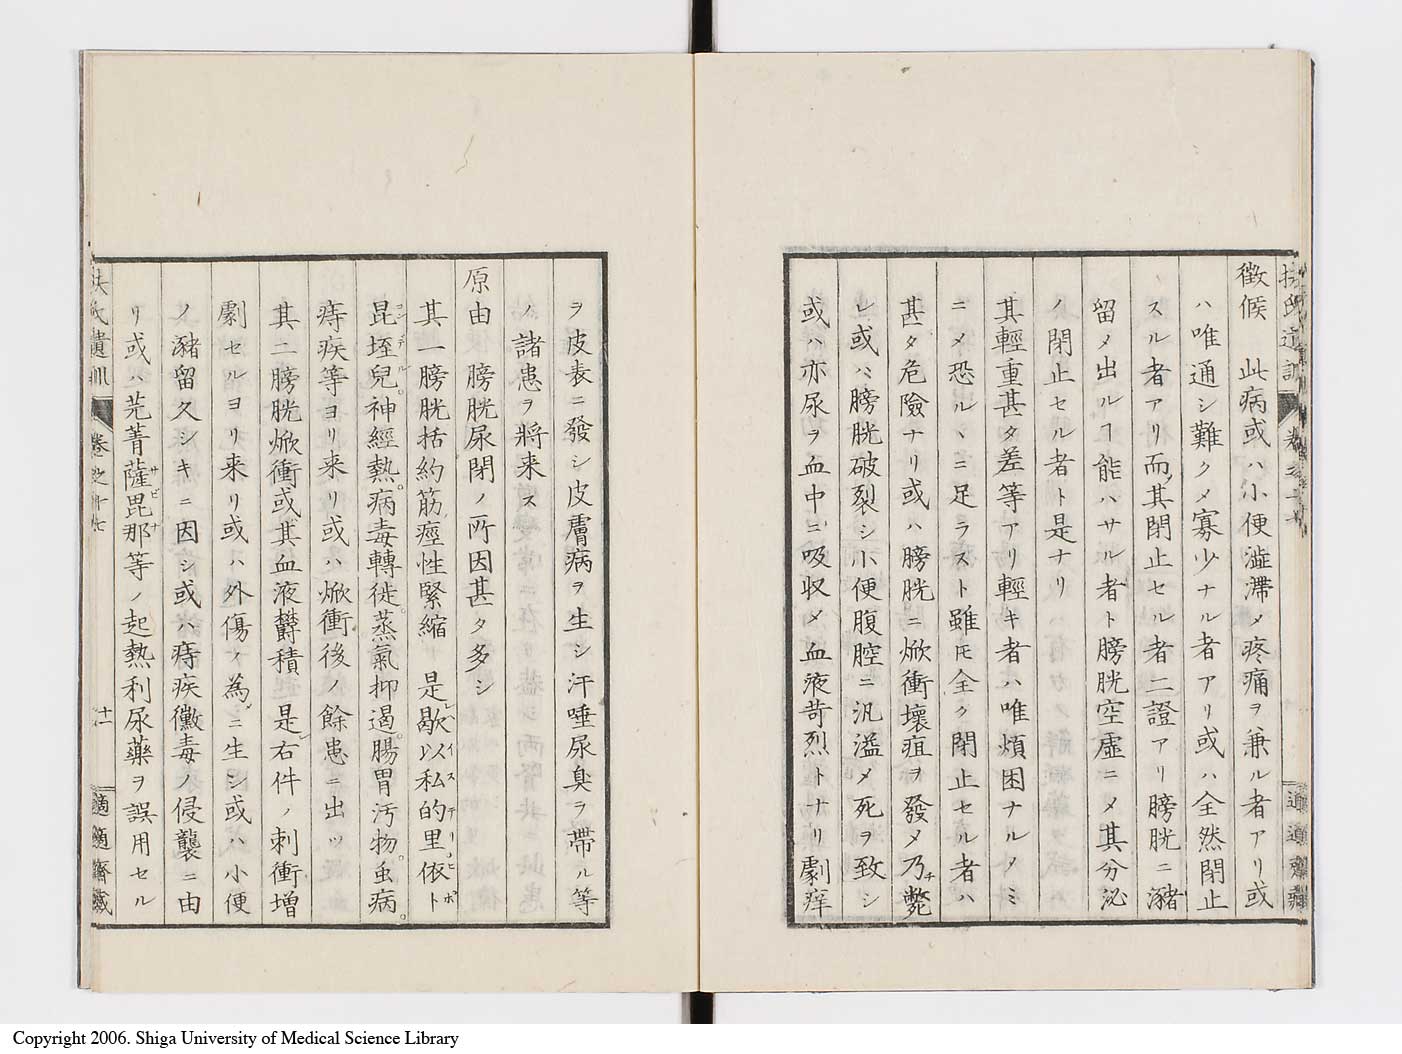 徴候　此病或ハ小便澁滯ノ疼痛ヲ兼ル者アリ或
ハ唯通シ難クメ寡少ナル者アリ或ハ全然閉止
スル者アリ而其閉止セル者二證アリ膀胱ニ瀦
留メ出ルヿ能ハサル者ト膀胱空虛ニメ其分泌
ノ閉止セル者ト是ナリ
其輕重甚タ差等アリ輕キ者ハ唯煩困ナルノミ
ニメ恐ルヽニ足ラスト雖𪜈全ク閉止セル者ハ
甚タ危險ナリ或ハ膀胱ニ焮衝壞疽ヲ發メ乃チ斃
レ或ハ膀胱破裂シ小便腹腔ニ汎溢メ死ヲ致シ
或ハ亦尿ヲ血中ニ吸収メ血液苛烈トナリ劇痒
ヲ皮表ニ發シ皮膚病ヲ生シ汗唾尿臭ヲ帶ル等
ノ諸患ヲ將来ス
原由　膀胱尿閉ノ所因甚タ多シ
其一膀胱括約筋痙性緊縮 是レ歇以私的里依卜
昆垤兒神經熱病毒轉徙蒸氣抑遏腸胃汚物虫病
痔疾等ヨリ来リ或ハ焮衝後ノ餘患ニ出ツ
其二膀胱焮衝或其血液欝積是レ右件ノ刺衝増
劇セルヨリ来リ或ハ外傷ノ為ニ生シ或ハ小便
ノ瀦留久シキニ因シ或ハ痔疾黴毒ノ侵襲ニ由
リ或ハ芫菁薩毘那等ノ起熱利尿藥ヲ誤用セル
扶氏遺訓 卷之十七 十一 適適齋藏